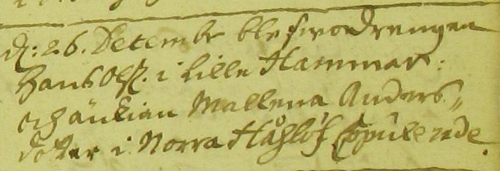 d: 26. Decembr blef wodrengen
Hans Ols. i Lille Hammar.
och änkian Mallena Anders,,
doter i Norra Håslöf Copulerade.